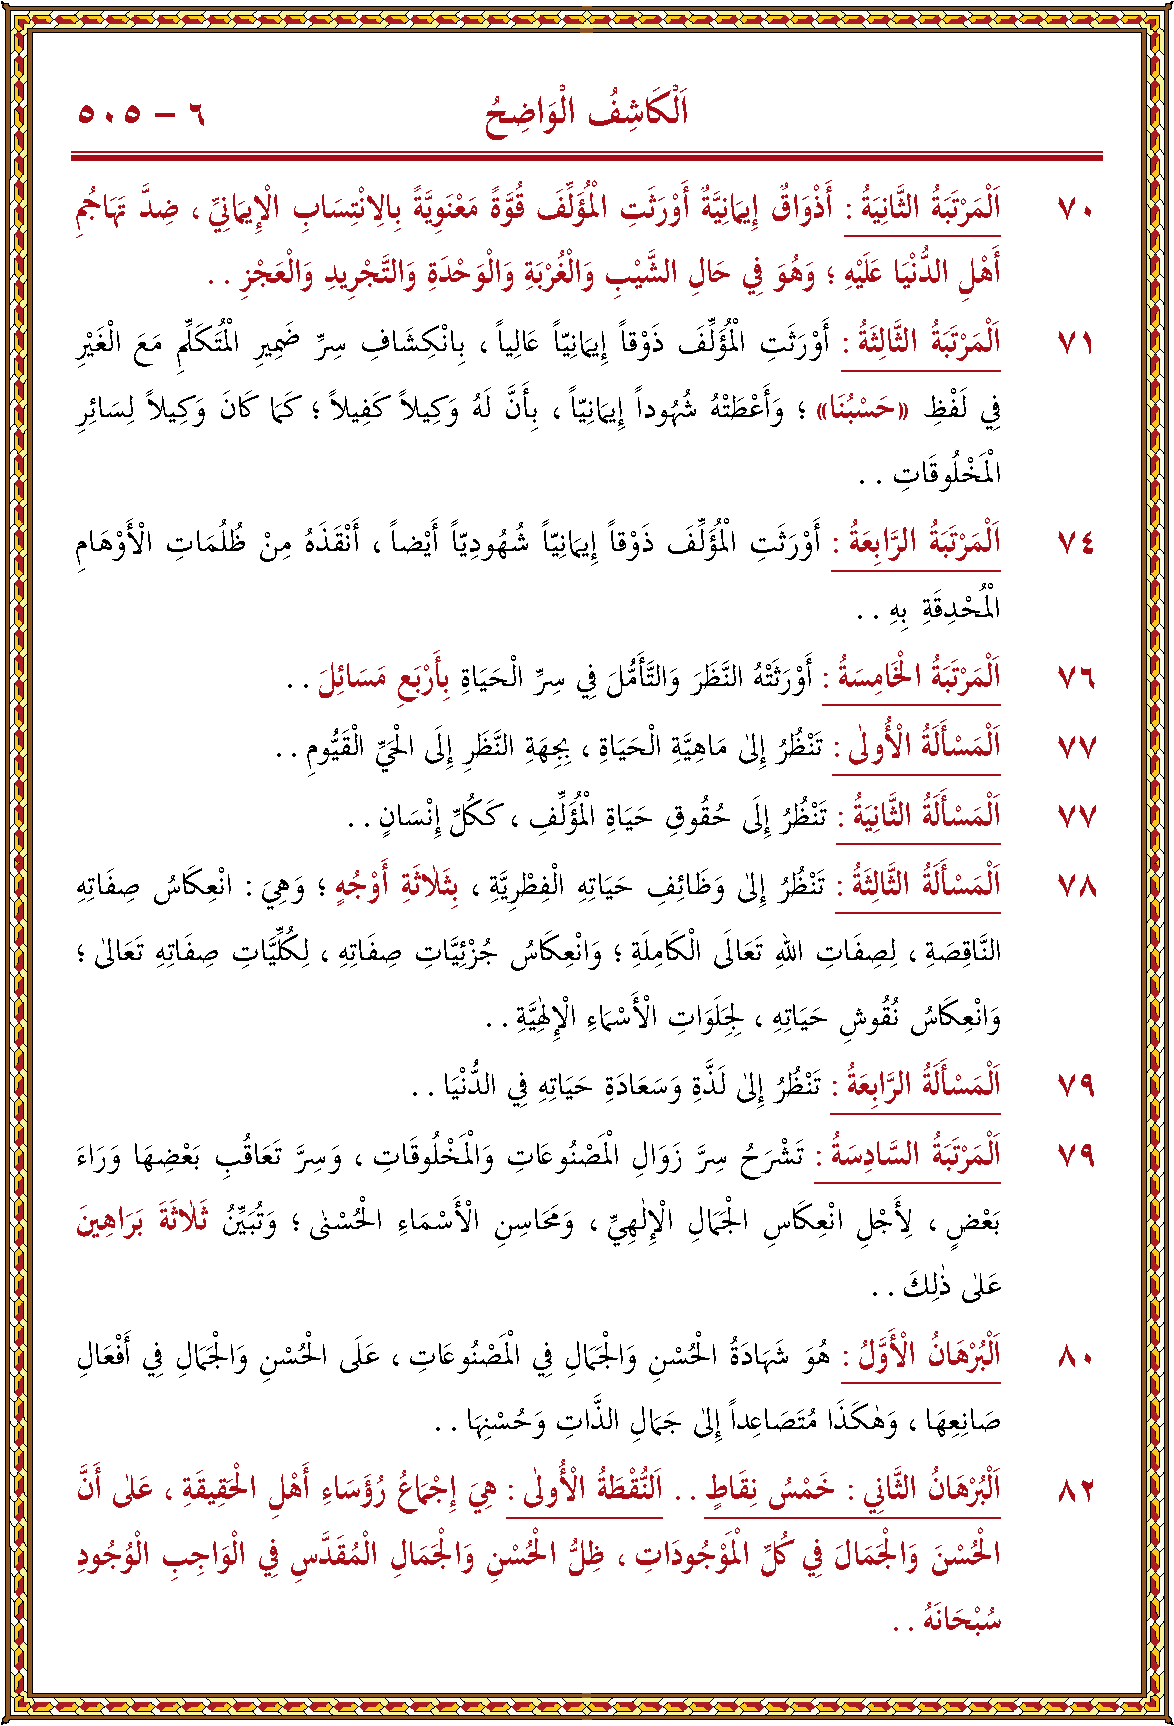 اَلْكَاشِفُ الْوَاضِحُ ٦ – ٥٠٥
٧٠ اَلْمَرْتَبَةُ الثَّانِيَةُ : أَذْوَاقٌ إِيمَانِيَّةٌ أَوْرَثَتِ الْمُؤَلِّفَ قُوَّةً مَعْنَوِيَّةً بِالِانْتِسَابِ الْإِيمَانِيِّ ، ضِدَّ تَهَاجُمِ
أَهْلِ الدُّنْيَا عَلَيْهِ ؛ وَهُوَ فِي حَالِ الشَّيْبِ وَالْغُرْبَةِ وَالْوَحْدَةِ وَالتَّجْرِيدِ وَالْعَجْزِ . .
٧١ اَلْمَرْتَبَةُ الثَّالِثَةُ : أَوْرَثَتِ الْمُؤَلِّفَ ذَوْقاً إِيمَانِيّاً عَالِياً ، بِانْكِشَافِ سِرِّ ضَمِيرِ الْمُتَكَلِّمِ مَعَ الْغَيْرِ
فِي لَفْظِ «حَسْبُنَا» ؛ وَأَعْطَتْهُ شُهُوداً إِيمَانِيّاً ، بِأَنَّ لَهُ وَكِيلاً كَفِيلاً ؛ كَمَا كَانَ وَكِيلاً لِسَائِرِ
الْمَخْلُوقَاتِ . .
٧٤ اَلْمَرْتَبَةُ الرَّابِعَةُ : أَوْرَثَتِ الْمُؤَلِّفَ ذَوْقاً إِيمَانِيّاً شُهُودِيّاً أَيْضاً ، أَنْقَذَهُ مِنْ ظُلُمَاتِ الْأَوْهَامِ
الْمُحْدِقَةِ بِهِ . .
٧٦ اَلْمَرْتَبَةُ الْخَامِسَةُ : أَوْرَثَتْهُ النَّظَرَ وَالتَّأَمُّلَ فِي سِرِّ الْحَيَاةِ بِأَرْبَعِ مَسَائِلَ . .
٧٧ اَلْمَسْأَلَةُ الْأُولٰى : تَنْظُرُ إِلٰى مَاهِيَّةِ الْحَيَاةِ ، بِجِهَةِ النَّظَرِ إِلَى الْحَيِّ الْقَيُّومِ . .
٧٧ اَلْمَسْأَلَةُ الثَّانِيَةُ : تَنْظُرُ إِلَى حُقُوقِ حَيَاةِ الْمُؤَلِّفِ ، كَكُلِّ إِنْسَانٍ . .
٧٨ اَلْمَسْأَلَةُ الثَّالِثَةُ : تَنْظُرُ إِلٰى وَظَائِفِ حَيَاتِهِ الْفِطْرِيَّةِ ، بِثَلَاثَةِ أَوْجُهٍ ؛ وَهِيَ : انْعِكَاسُ صِفَاتِهِ
النَّاقِصَةِ ، لِصِفَاتِ اللهِ تَعَالَى الْكَامِلَةِ ؛ وَانْعِكَاسُ جُزْئِيَّاتِ صِفَاتِهِ ، لِكُلِّيَّاتِ صِفَاتِهِ تَعَالٰى ؛
وَانْعِكَاسُ نُقُوشِ حَيَاتِهِ ، لِجَلَوَاتِ الْأَسْمَاءِ الْإِلٰهِيَّةِ . .
٧٩ اَلْمَسْأَلَةُ الرَّابِعَةُ : تَنْظُرُ إِلٰى لَذَّةِ وَسَعَادَةِ حَيَاتِهِ فِي الدُّنْيَا . .
٧٩ اَلْمَرْتَبَةُ السَّادِسَةُ : تَشْرَحُ سِرَّ زَوَالِ الْمَصْنُوعَاتِ وَالْمَخْلُوقَاتِ ، وَسِرَّ تَعَاقُبِ بَعْضِهَا وَرَاءَ
بَعْضٍ ، لِأَجْلِ انْعِكَاسِ الْجَمَالِ الْإِلٰهِيِّ ، وَمَحَاسِنِ الْأَسْمَاءِ الْحُسْنٰى ؛ وَتُبَيِّنُ ثَلَاثَةَ بَرَاهِينَ
عَلٰى ذٰلِكَ . .
٨٠ اَلْبُرْهَانُ الْأَوَّلُ : هُوَ شَهَادَةُ الْحُسْنِ وَالْجَمَالِ فِي الْمَصْنُوعَاتِ ، عَلَى الْحُسْنِ وَالْجَمَالِ فِي أَفْعَالِ
صَانِعِهَا ، وَهٰكَذَا مُتَصَاعِداً إِلٰى جَمَالِ الذَّاتِ وَحُسْنِهَا . .
٨٢ اَلْبُرْهَانُ الثَّانِي : خَمْسُ نِقَاطٍ . . اَلنُّقْطَةُ الْأُولٰى : هِيَ إِجْمَاعُ رُؤَسَاءِ أَهْلِ الْحَقِيقَةِ ، عَلٰى أَنَّ
الْحُسْنَ وَالْجَمَالَ فِي كُلِّ الْمَوْجُودَاتِ ، ظِلُّ الْحُسْنِ وَالْجَمَالِ الْمُقَدَّسِ فِي الْوَاجِبِ الْوُجُودِ
سُبْحَانَهُ . .